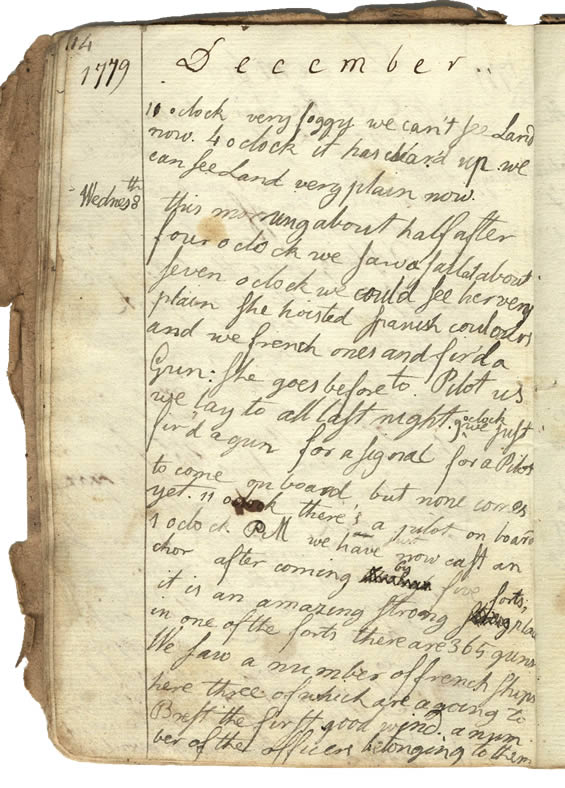 114
1779 December
11 oclock very foggy we can't see Land
now. 4 oclock it has clear'd up we
can see Land very plain now.
Wednes 8th this morning about half after
four oclock we saw a sail at about
seven oclock we could see her very
plain she hoisted spanish coulours
and we french ones and fir'd a
Gun: she goes before to Pilot us
we lay to all last night. 9 oclock we just
fir'd a gun for a signal for a Pilot
to come on board but none comes
yet. 11 oclock there's a pilot on board
1 oclock PM we have just now cast an
chor after coming by five forts,
it is an amazing strong place
in one of the forts there are 365 guns
We saw a number of french ships
here three of which are a going to
Brest the first good wind. a num
ber of the officers belonging to them